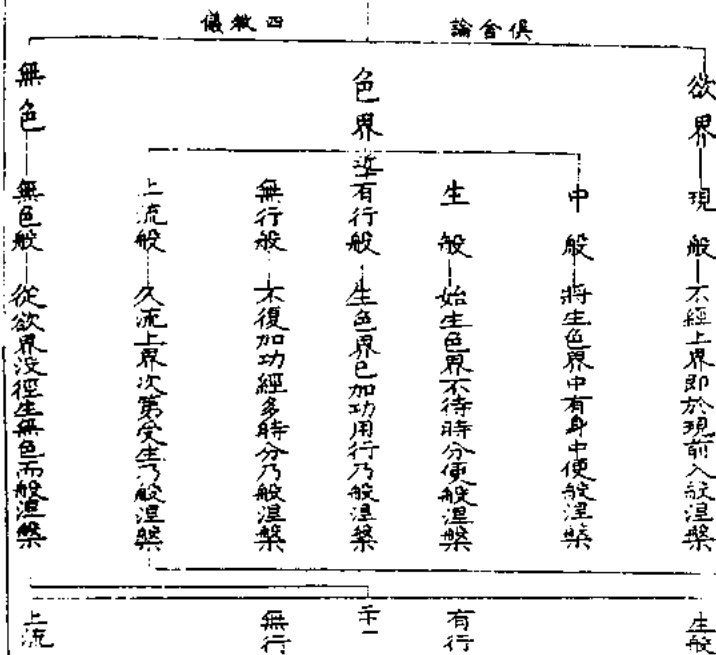 俱舍論
四教儀
欲界
現般
不經上界即於現前入般涅槃
色界
中般
將生色界中有身中便般涅槃
生般
始生色界不待時分便般涅槃
有行般
生色界已加功用行乃般涅槃
無行般
不復加功經多時分乃般涅槃
上流般
久流上界次第受生乃般涅槃
無色
無色般
從欲界没徑生無色而般涅槃
生般
有行
無行
上流